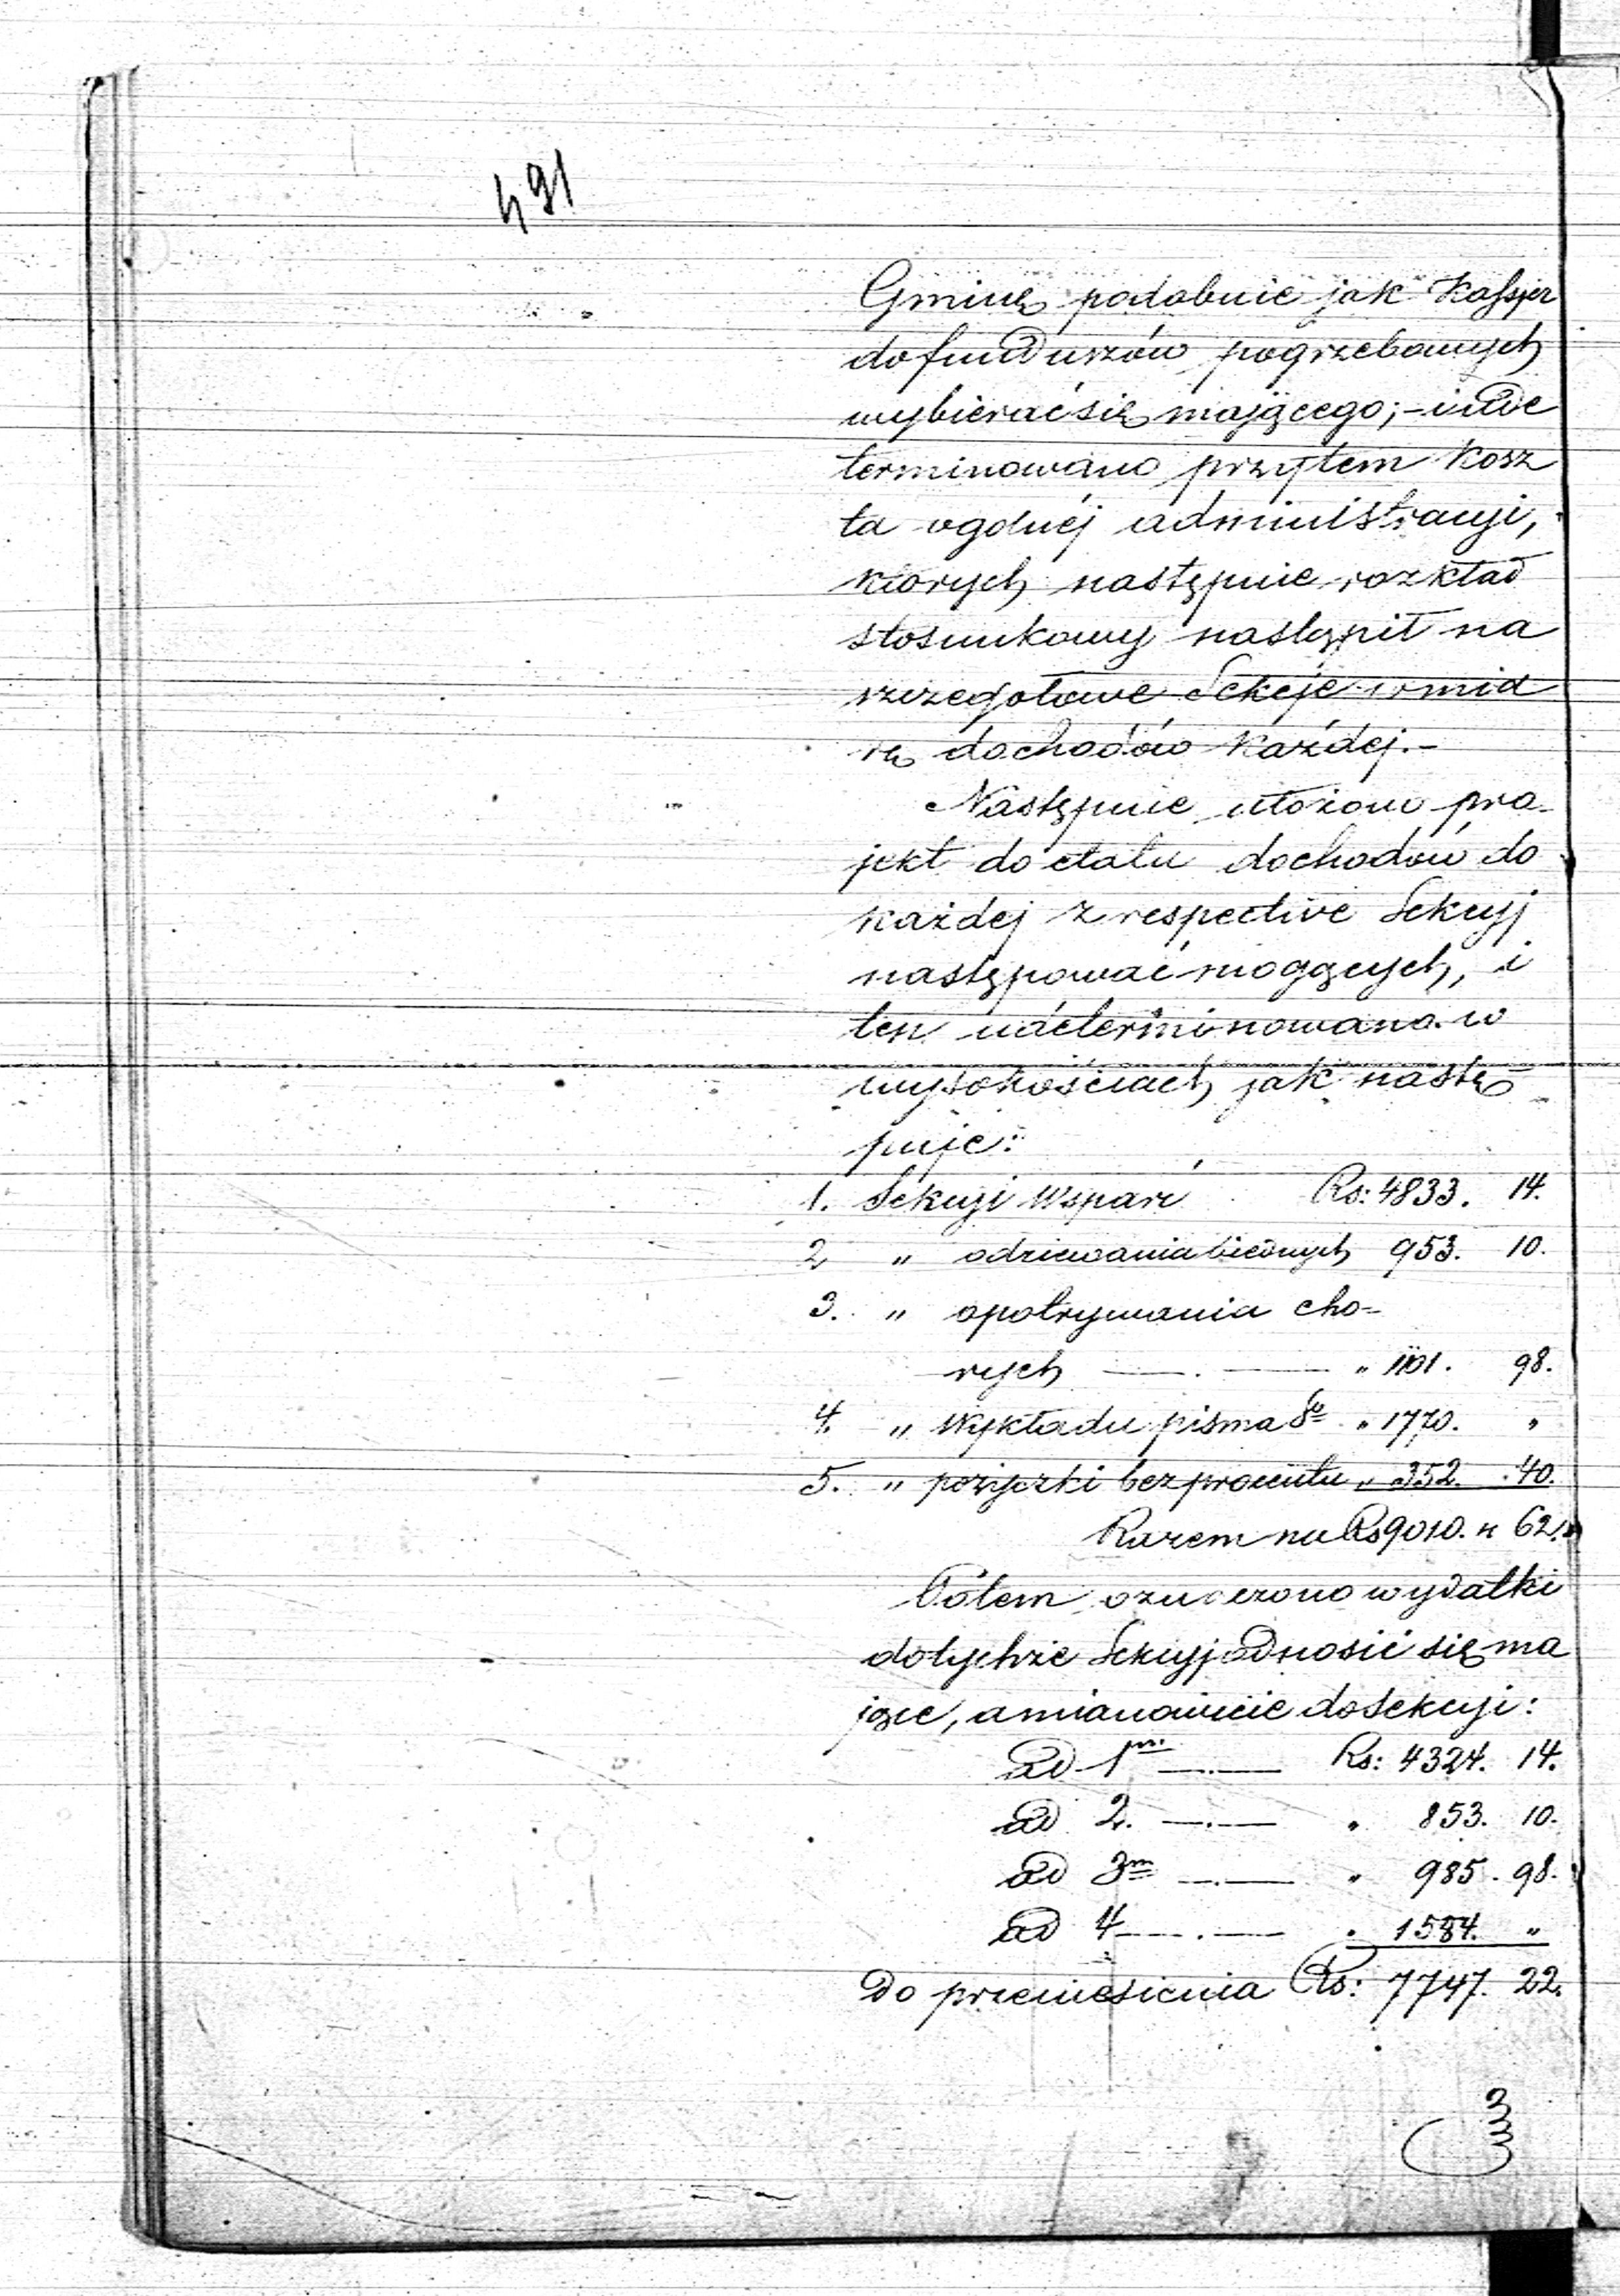 491
Gminę podobnie jak Kassjer
do funduszów pogrzebowych
wybierać się mającego; – i ude
terminowano przytem kosz
ta ogolnéj administracyi,
których następnie rozkład
stosunkowy nastąpił na
szczegołowe Sekcje w mia
rę dochodów każdéj. –
Następnie ułożono pro-
jekt do etatu dochodów do
każdej z respective Sekcyj
następować mogących, i
ten udeterminowano w
wysokościach jak nastę
puje:
1. Sekcyi Wsparć Rs: 4833. 14.
2 „ odziewania biednych 953. 10.
3. „ opatrywania cho-
rych —.— „ 1101. 98.
4. „ Wykładu pisma Sº „ 1770. „
5. „ pożyczki bez procentu „ 352. 40.
Razem na Rs 9010. k 62.
Potem oznaczono wydatki
do tychże Sekcyj odnosić się ma
jące, a mianowicie do Sekcyi:
ad 1m —.— Rs: 4324. 14.
ad 2. —.— „ 853. 10.
ad 3m —.— „ 985. 98.
ad 4 —.— „ 1584. „
Do przeniesienia Rs: 7747. 22.